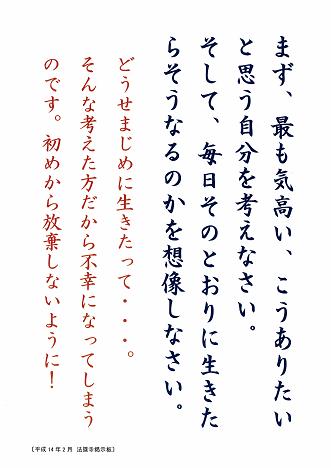 まず、最も気高い、こうありたい
と思う自分を考えなさい。
そして、毎日そのとおりに生きた
らそうなるのかを想像しなさい。
どうせまじめに生きたって・・・。
そんな考えた方だから不幸になってしまう
のです。初めから放棄しないように！
［平成14年2月 法圓寺掲示板］